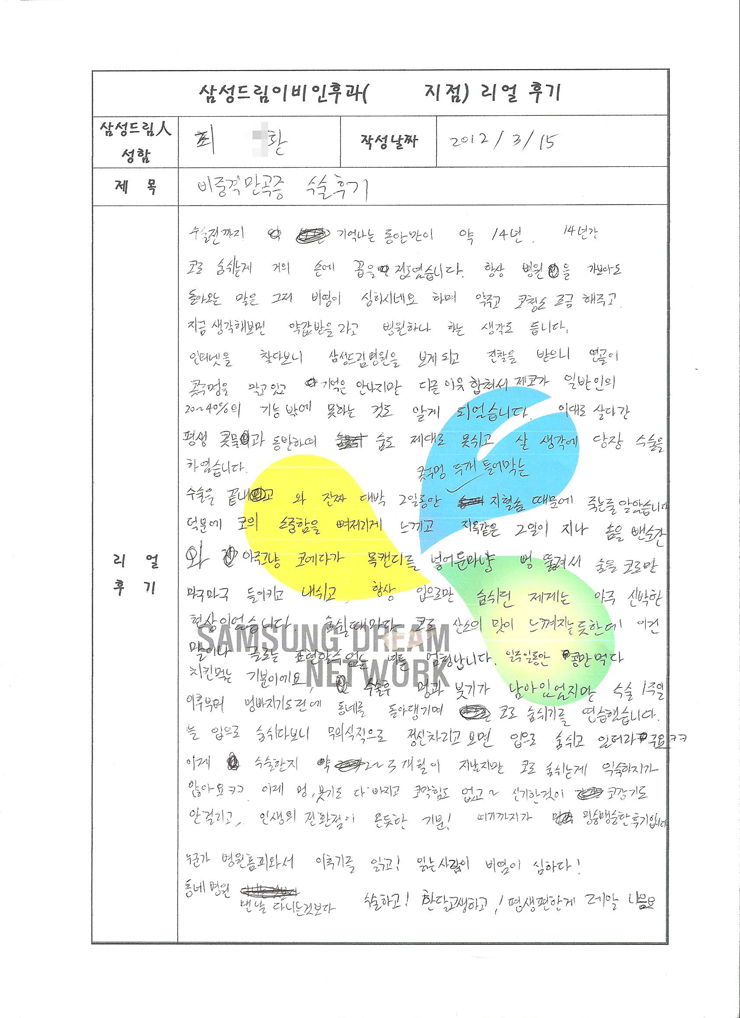 삼성드림이비인후과( 지점) 리얼 후기
삼성드림人
성함
최 환
작성날짜
2012/3/15
제 목
비중격만곡증 수술후기
리 얼
후 기
수술전까지 기억나는 동안만이 약 14년. 14년간
코로 숨쉬는게 거의 손에 꼽을 정도였습니다. 항상 병원을 가보아도
돌아오는 말은 그저 비염이 심하시네요 하며 약주고 코청소 조금 해주고.
지금 생각해보면 약값받을라고 병원하나 하는 생각도 듭니다.
인터넷을 찾다보니 삼성드림병원을 보게되고 진찰을 받으니 연골이
콧구멍을 막고있고 기억은 안나지만 다른이유 합쳐서 제코가 일반인의
20~40%의 기능밖에 못하는 것도 알게 되었습니다 이대로 살다간
평생 콧물과 동반하며 숨도 제대로 못쉬고 살 생각에 당장 수술을
하였습니다.
콧구멍 두개 틀어막는
수술을 끝내고 와 진짜 대박 2일동안 지혈솜 때문에 죽는줄알았습니다
덕분에 코의 소중함을 뼈저리게 느끼고 지옥같은 2일이 지나 솜을 뺀순간
와 아주그냥 코에다가 목캔디를 넣어둔마냥 뻥 뚫려서 숨을 코로만
마구마구 들이키고 내쉬고, 항상 입으로만 숨쉬던 제게는 아주 신박한
현상이었습니다 숨쉴때마다 코로 산소의 맛이 느껴지는듯한데 이건
SAMSUNG DREAM
NETWORK
말이나 글로는 표현할수 없는 엄청납니다. 일주일동안 콩만먹다
치킨먹는 기분이에요, 수술후 멍과 붓기가 남아있었지만 수술 1주일
이후부터 멍빠지기도전에 동네를 돌아댕기며 코로 숨쉬기를 연습했습니다.
늘 입으로 숨쉬다보니 무의식적으로 정신차리고보면 입으로 숨쉬고 있더라구요ㅋㅋ
이제 수술한지 약 2~3개월이 지났지만 코로 숨쉬는게 익숙하지가
않아요ㅋㅋ 이제 멍,붓기도 다 빠지고 코막힘도 없고~ 신기한것이 코감기도
안걸리고, 인생의 전환점이 온듯한 기분! 여기까지가 뒤숭생숭한후기입니다
누군가 병원홈피와서 이후기를 읽고! 읽는사람이 비염이 심하다!
동네병원
맨날 다니는것보다 수술하고! 한달고생하고! 평생편한게 제일 나음요